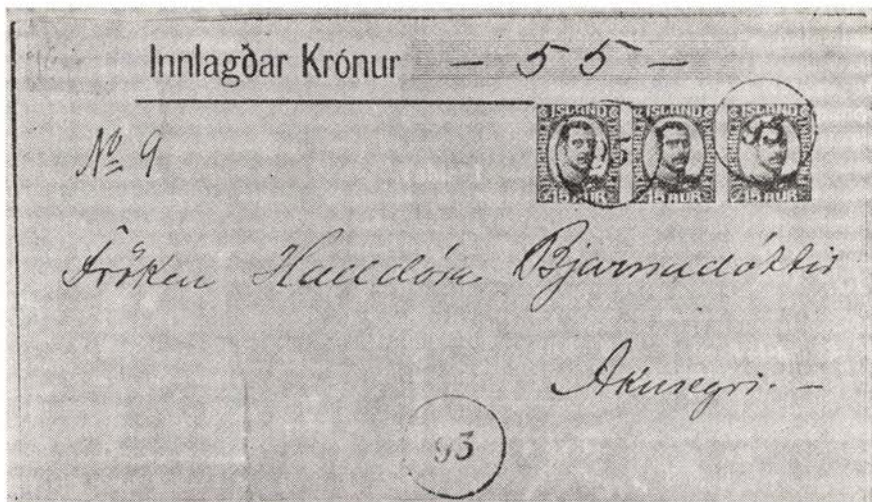 Innlagðar Krónur — 55 —
ÍSLAND ÍSLAND ÍSLAND
15 AUR 15 AUR 15 AUR
93 93
No 9
Fröken Halldóra Bjarnadóttir
Akureyri. —
93